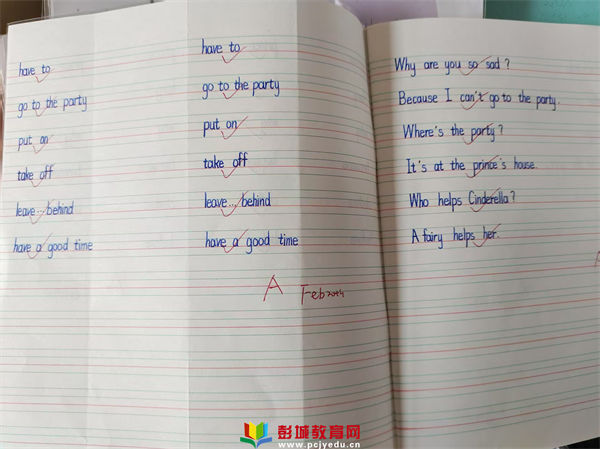 have to
go to the party
put on
take off
leave... behind
have a good time
have to
go to the party
put on
take off
leave... behind
have a good time
A
Feb
Why are you so sad?
Because I can't go to the party.
Where's the party?
It's at the prince's house.
Who helps Cinderella?
A fairy helps her.
彭城教育网
www.pcjyedu.cn